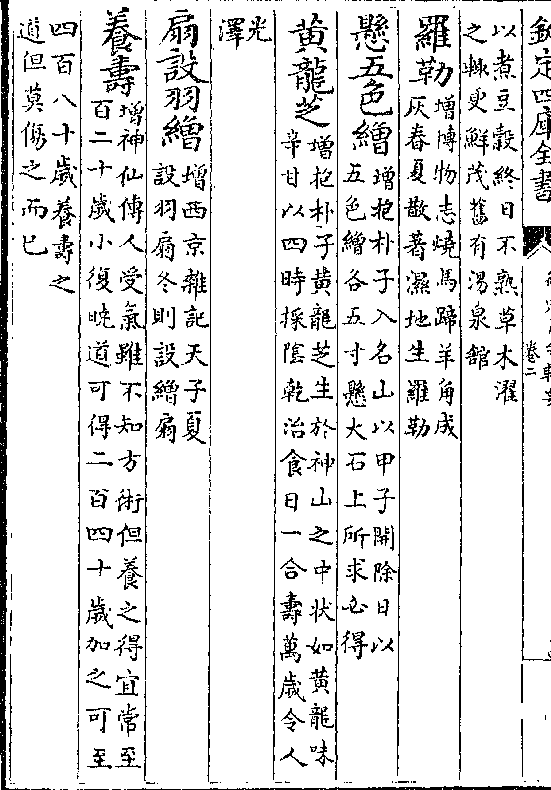 欽定四庫全書
卷二
以煮豆穀終日不熟草木濯
之輙更鮮茂舊有湯泉館
羅勒
增博物志燒馬蹄羊角成
灰春夏散著濕地生羅勒
懸五色繒
增抱朴子入名山以甲子開除日以
五色繒各五寸懸大石上所求必得
黃龍芝
增抱朴子黃龍芝生於神山之中狀如黃龍味
辛甘以四時採陰乾治食日一合壽萬歲令人
光
澤
扇設羽繒
增西京雜記天子夏
設羽扇冬則設繒扇
養壽
增神仙傳人受氣雖不知方術但養之得宜常至
百二十歲小復曉道可得二百四十歲加之可至
四百八十歲養壽之
道但莫傷之而已